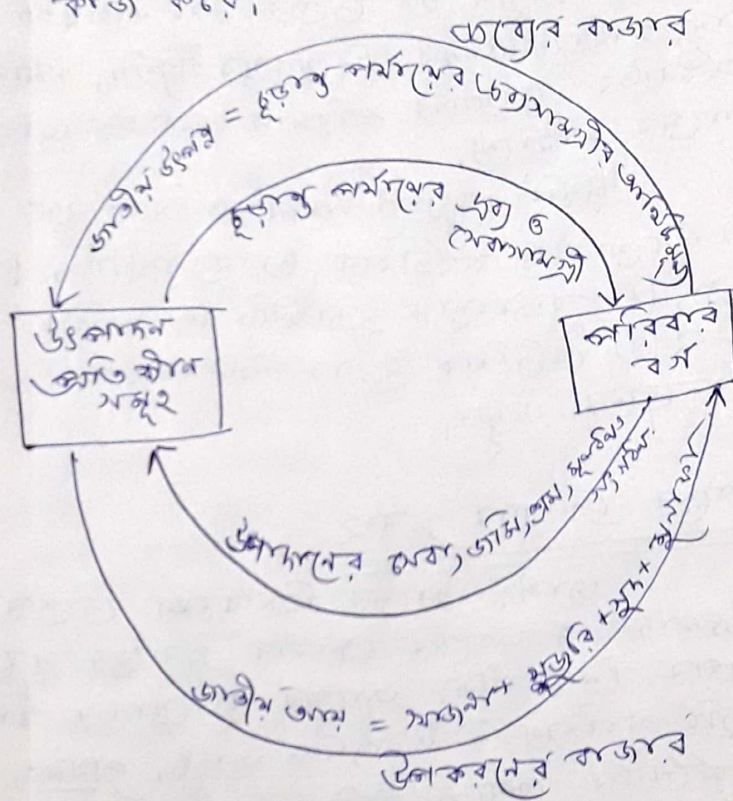 কাজ করে।
দ্রব্যের বাজার
জাতীয় উৎপন্ন = চূড়ান্ত পর্যায়ের দ্রব্যসামগ্রীর আর্থিকমূল্য
চূড়ান্ত পর্যায়ের দ্রব্য ও
সেবাসামগ্রী
উৎপাদন
প্রতিষ্ঠান
সমূহ
পরিবার
বর্গ
উপাদানের সেবা, জমি, শ্রম, মূলধন,
সংগঠন
জাতীয় আয় = খাজনা + মজুরি + সুদ + মুনাফা
উপকরণের বাজার